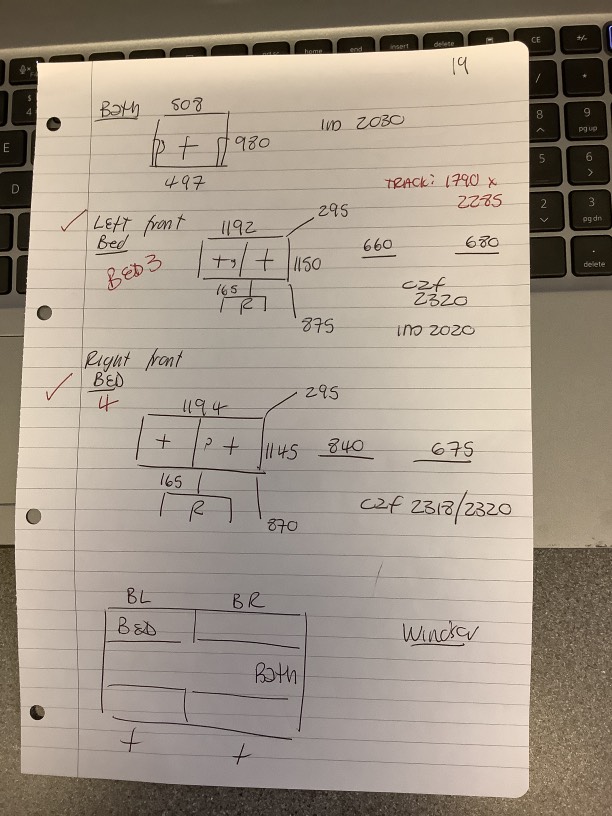 19
Bath 508
980 IND 2030
497
TRACK: 1790 x
2285
Left front 1192 295
Bed 660 680
BED 3 1150
165 czf
R 2320
875 IND 2020
Right front
BED 295
4 1194
1145 840 675
165
R czf 2318/2320
870
BL BR
BED Windsor
Bath
home end insert delete CE +/-
/ *
8 9 pg up
E 5 6
D 2 3 pg dn
. delete